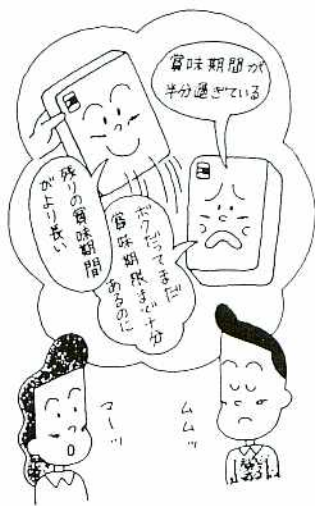 賞味期間が
半分過ぎている
残りの賞味期間
がより長い
ボクだってまだ
賞味期限まで十分
あるのに
ムムッ
マーッ